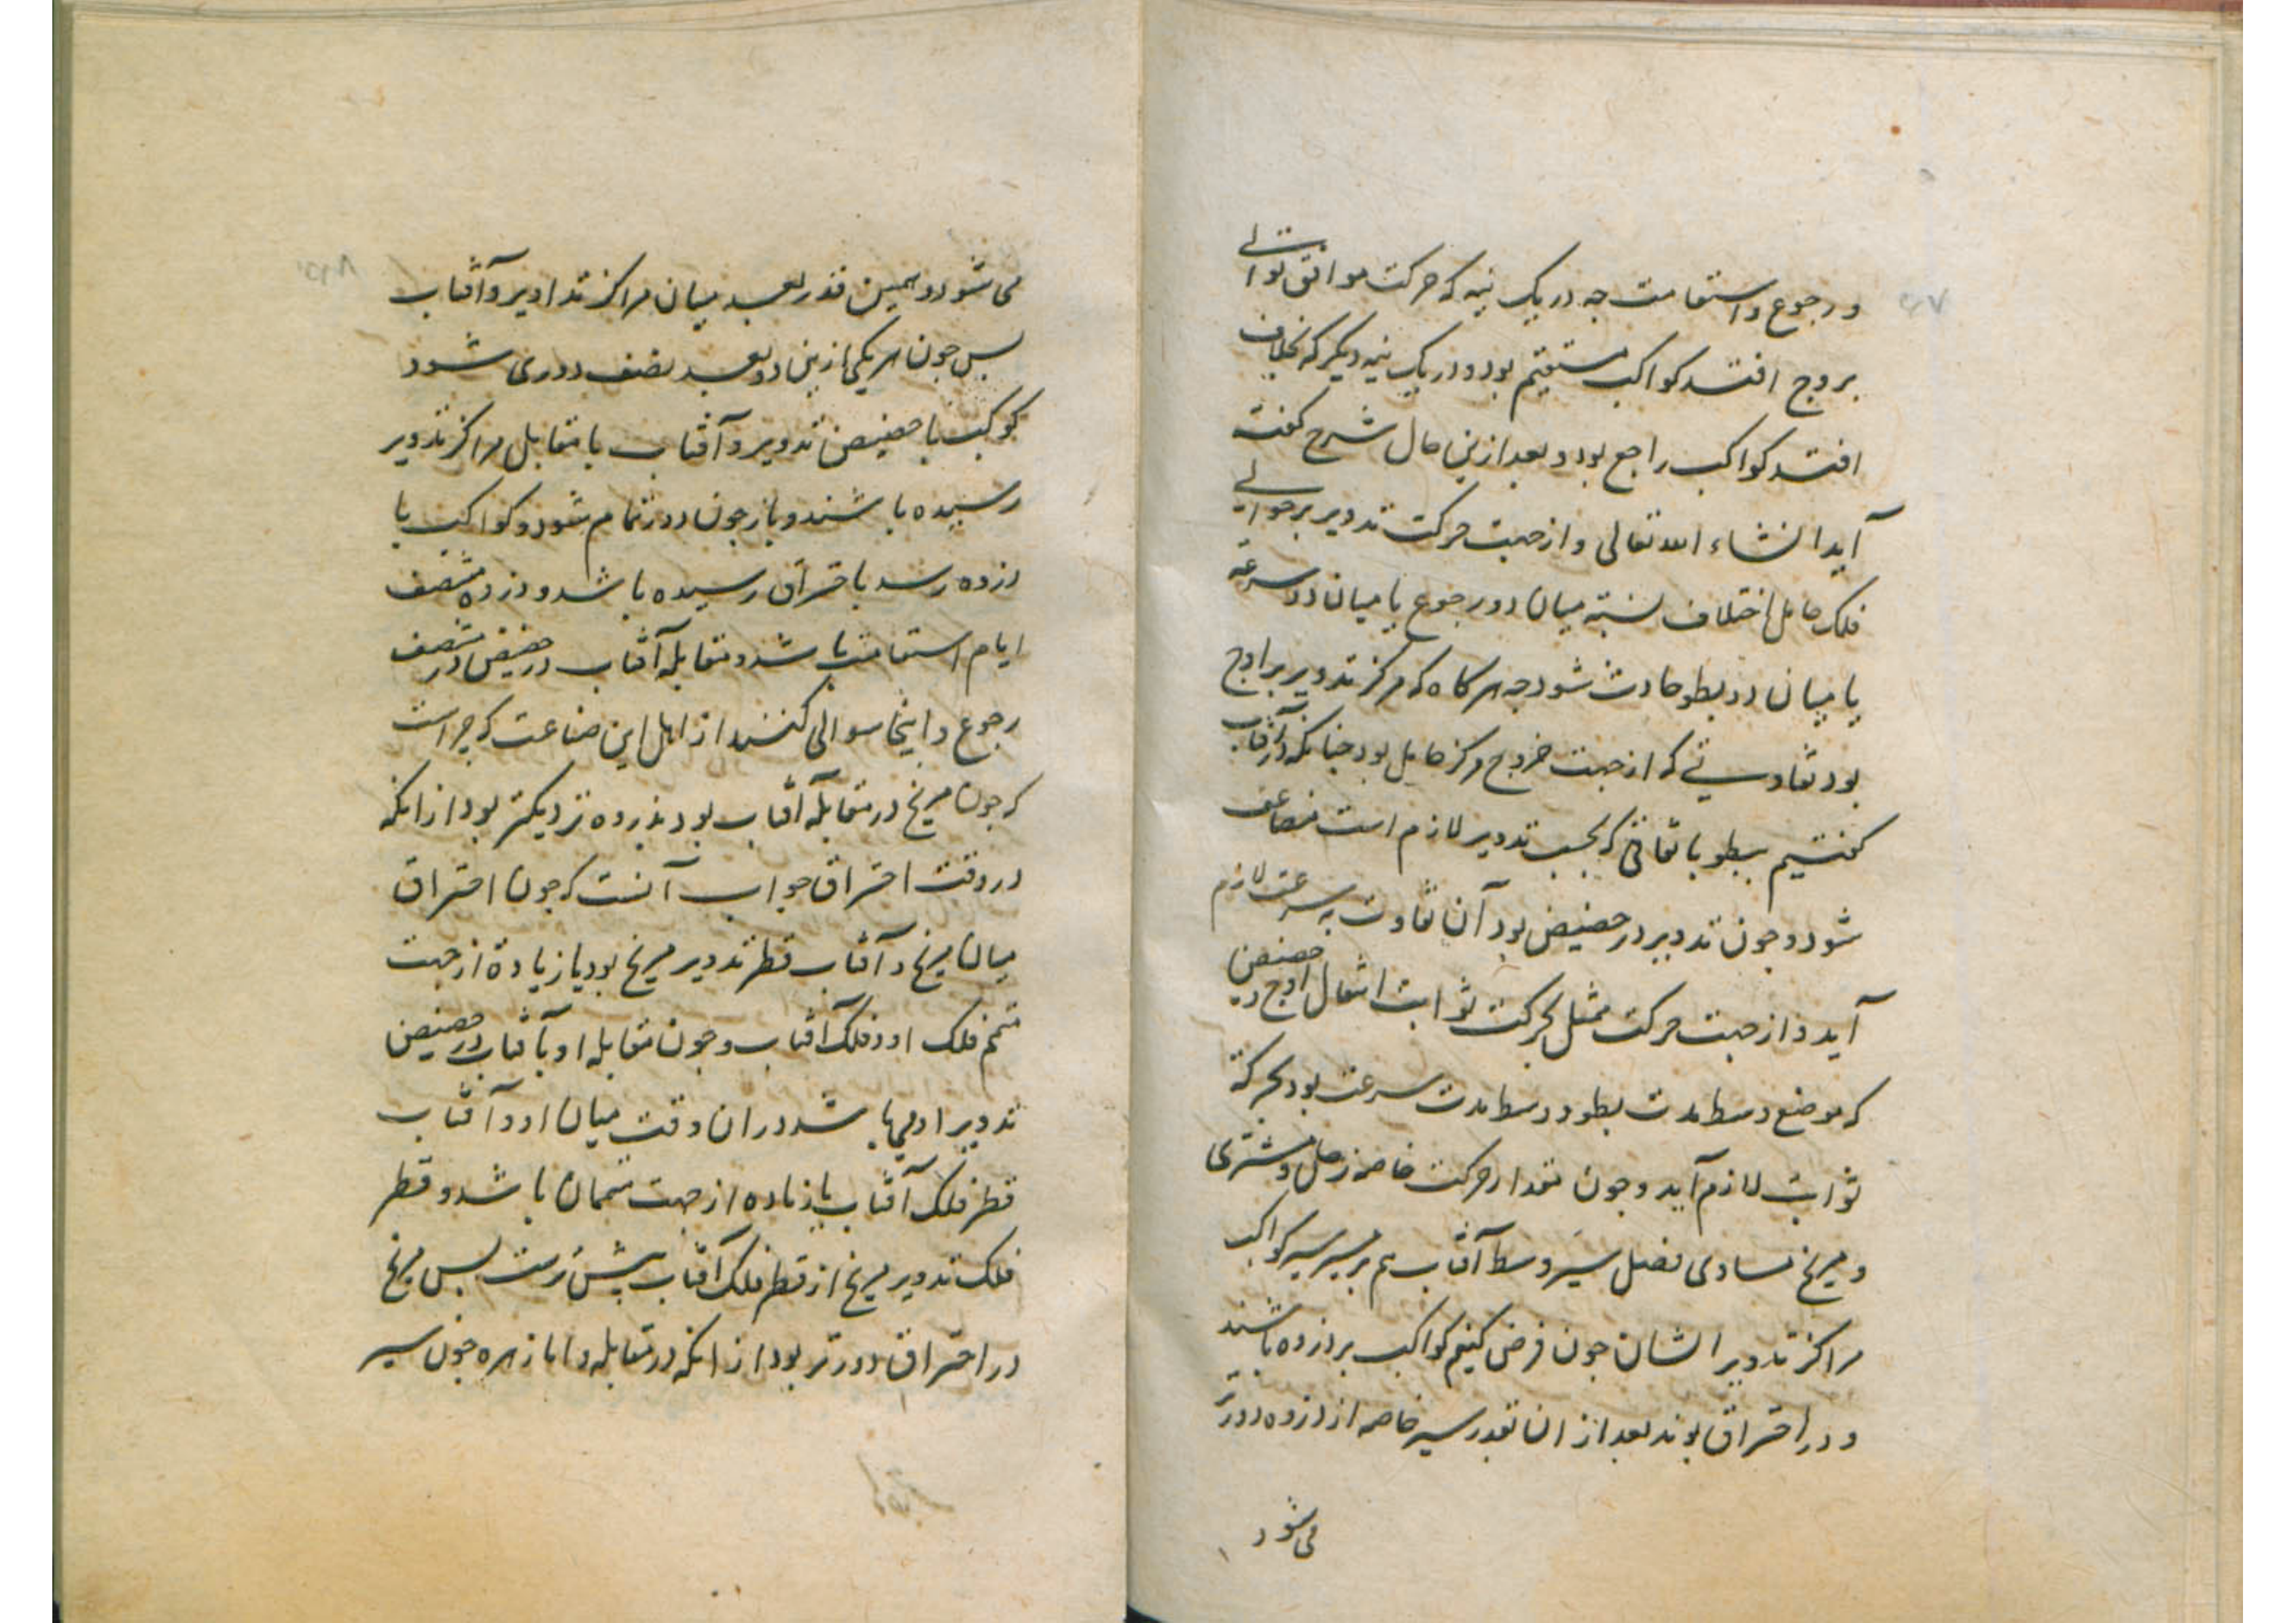 و رجوع و استقامت چه در یک نیمه که حرکت موافق توالی
بروج افتد کواکب مستقیم بود و در یک نیمه دیگر که بخلاف
افتد کواکب راجع بود و بعد ازین حال شرح گفته
آید انشاء الله تعالی و از جهت حرکت تدویر بر حوالی
فلک حامل اختلاف نسبة میان دو رجوع یا میان دو سرعة
یا میان دو بطو حادث شود چه هرگاه که مرکز تدویر بر اوج
بود تفاوتی که از جهت خروج مرکز حامل بود چنانکه در آفتاب
گفتیم ببطو با تفاقی که بحسب تدویر لازم است مضاعف
شود و چون تدویر در حضیض بود آن تفاوت به سرعت لازم
آید و از جهت حرکت ممثل بحرکت ثوابت انتقال اوج و حضیض
که موضع وسط مدت بطو و وسط مدت سرعت بود بحرکة
ثوابت لازم آید و چون مقدار حرکت خاصه زحل و مشتری
و مریخ مساوی فضل سیر وسط آفتاب هم بر سیر کواکب
مراکز تدویر ایشان چون فرض کنیم کواکب بر ذروه باشند
و در احتراق بوند بعد از ان بقدر سیر خاصه از ذروه دورتر
می شود
می شود و همین قدر بعد میان مراکز تداویر و آفتاب
پس چون هر یکی ازین دو بعد نصف دوری شود
کوکب با حضیض تدویر و آفتاب با مقابل مراکز تدویر
رسیده باشند و باز چون دور تمام شود و کواکب با
ذروه رسد با احتراق رسیده باشد و ذروه منتصف
ایام استقامت باشد و مقابله آفتاب در حضیض و در منتصف
رجوع و اینجا سوالی کنند از اهل این صناعت که چراست
که چون مریخ در مقابله آفتاب بود بذروه نزدیکتر بود از انکه
در وقت احتراق جواب آنست که چون احتراق
میان مریخ و آفتاب قطر تدویر مریخ بود یا زیادة از جهت
متمم فلک او و فلک آفتاب و چون مقابله او بآفتاب در حضیض
تدویر او باشد در ان وقت میان او و آفتاب
قطر فلک آفتاب یا زیاده از جهت متممان باشد و قطر
فلک تدویر مریخ از قطر فلک آفتاب بیشترست پس مریخ
در احتراق دورتر بود از انکه در مقابله و اما زهره چون سیر